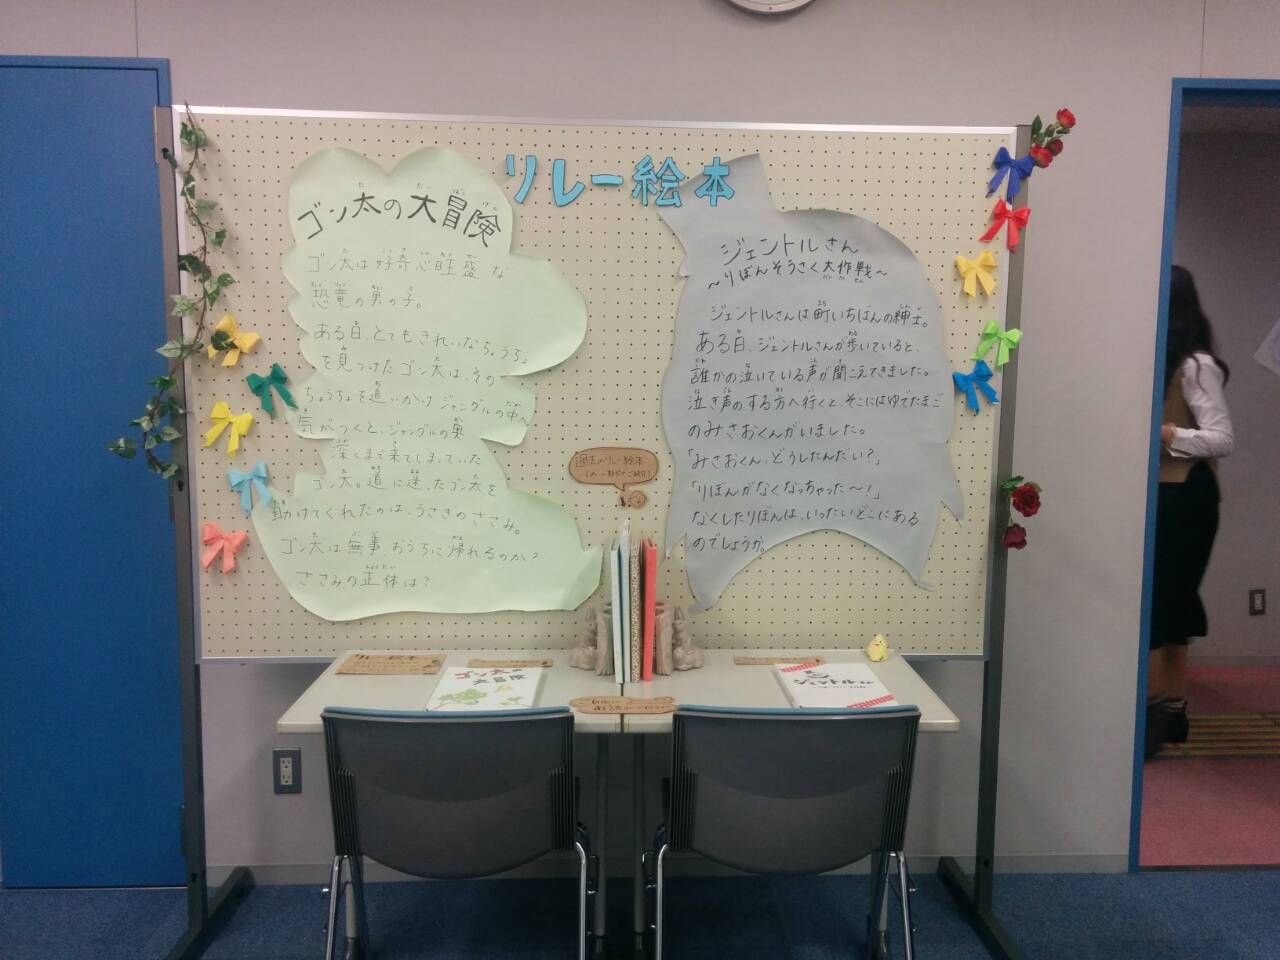 リレー絵本
ゴン太の大冒険
ゴン太は好奇心旺盛な
恐竜の男の子。
ある日、とてもきれいなちょうちょ
を見つけたゴン太は、その
ちょうちょを追いかけジャングルの中へ。
気がつくと、ジャングルの奥
深くまで来てしまっていた
ゴン太。道に迷ったゴン太を
助けてくれたのは、うさぎのささみ。
ゴン太は無事、おうちに帰れるのか?
ささみの正体は?
ジェントルさん
〜りぼんそうさく大作戦〜
ジェントルさんは町いちばんの紳士。
ある日、ジェントルさんが歩いていると、
誰かの泣いている声が聞こえてきました。
泣き声のする方へ行くと、そこにはゆでたまご
のみさおくんがいました。
「みさおくん、どうしたんだい?」
「りぼんがなくなっちゃった〜!」
なくしたりぼんは、いったいどこにある
のでしょうか。
過去のリレー絵本
ゴン太の
大冒険
ジェントルさん